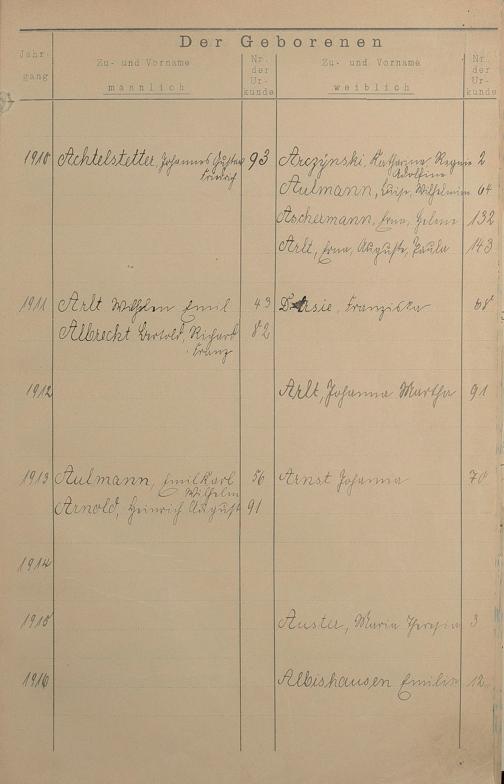 Der Geborenen
Jahr-
gang
Zu- und Vorname
männlich
Nr.
der
Ur-
kunde
Zu- und Vorname
weiblich
Nr.
der
Ur-
kunde
1910 Achtelstetter, Johannes Gustav 93 Arczynski, Katharina Regina 2
Friedrich Adolfine
Aulmann, Luise, Wilhelmine 64
Aschermann, Erna, Helene 132
Arlt, Erna, Auguste, Paula 143
1911 Arlt Wilhelm Emil 43 Franziska 68
Albrecht Bertold, Richard 82
Franz
1912 Arlt, Johanna Martha 91
1913 Aulmann, Emil Karl 56 Arnst Johanna 70
Wilhelm
Arnold, Heinrich August 91
1914
1915 Auster, Maria Theresia 3
1916 Albishausen Emilie 12